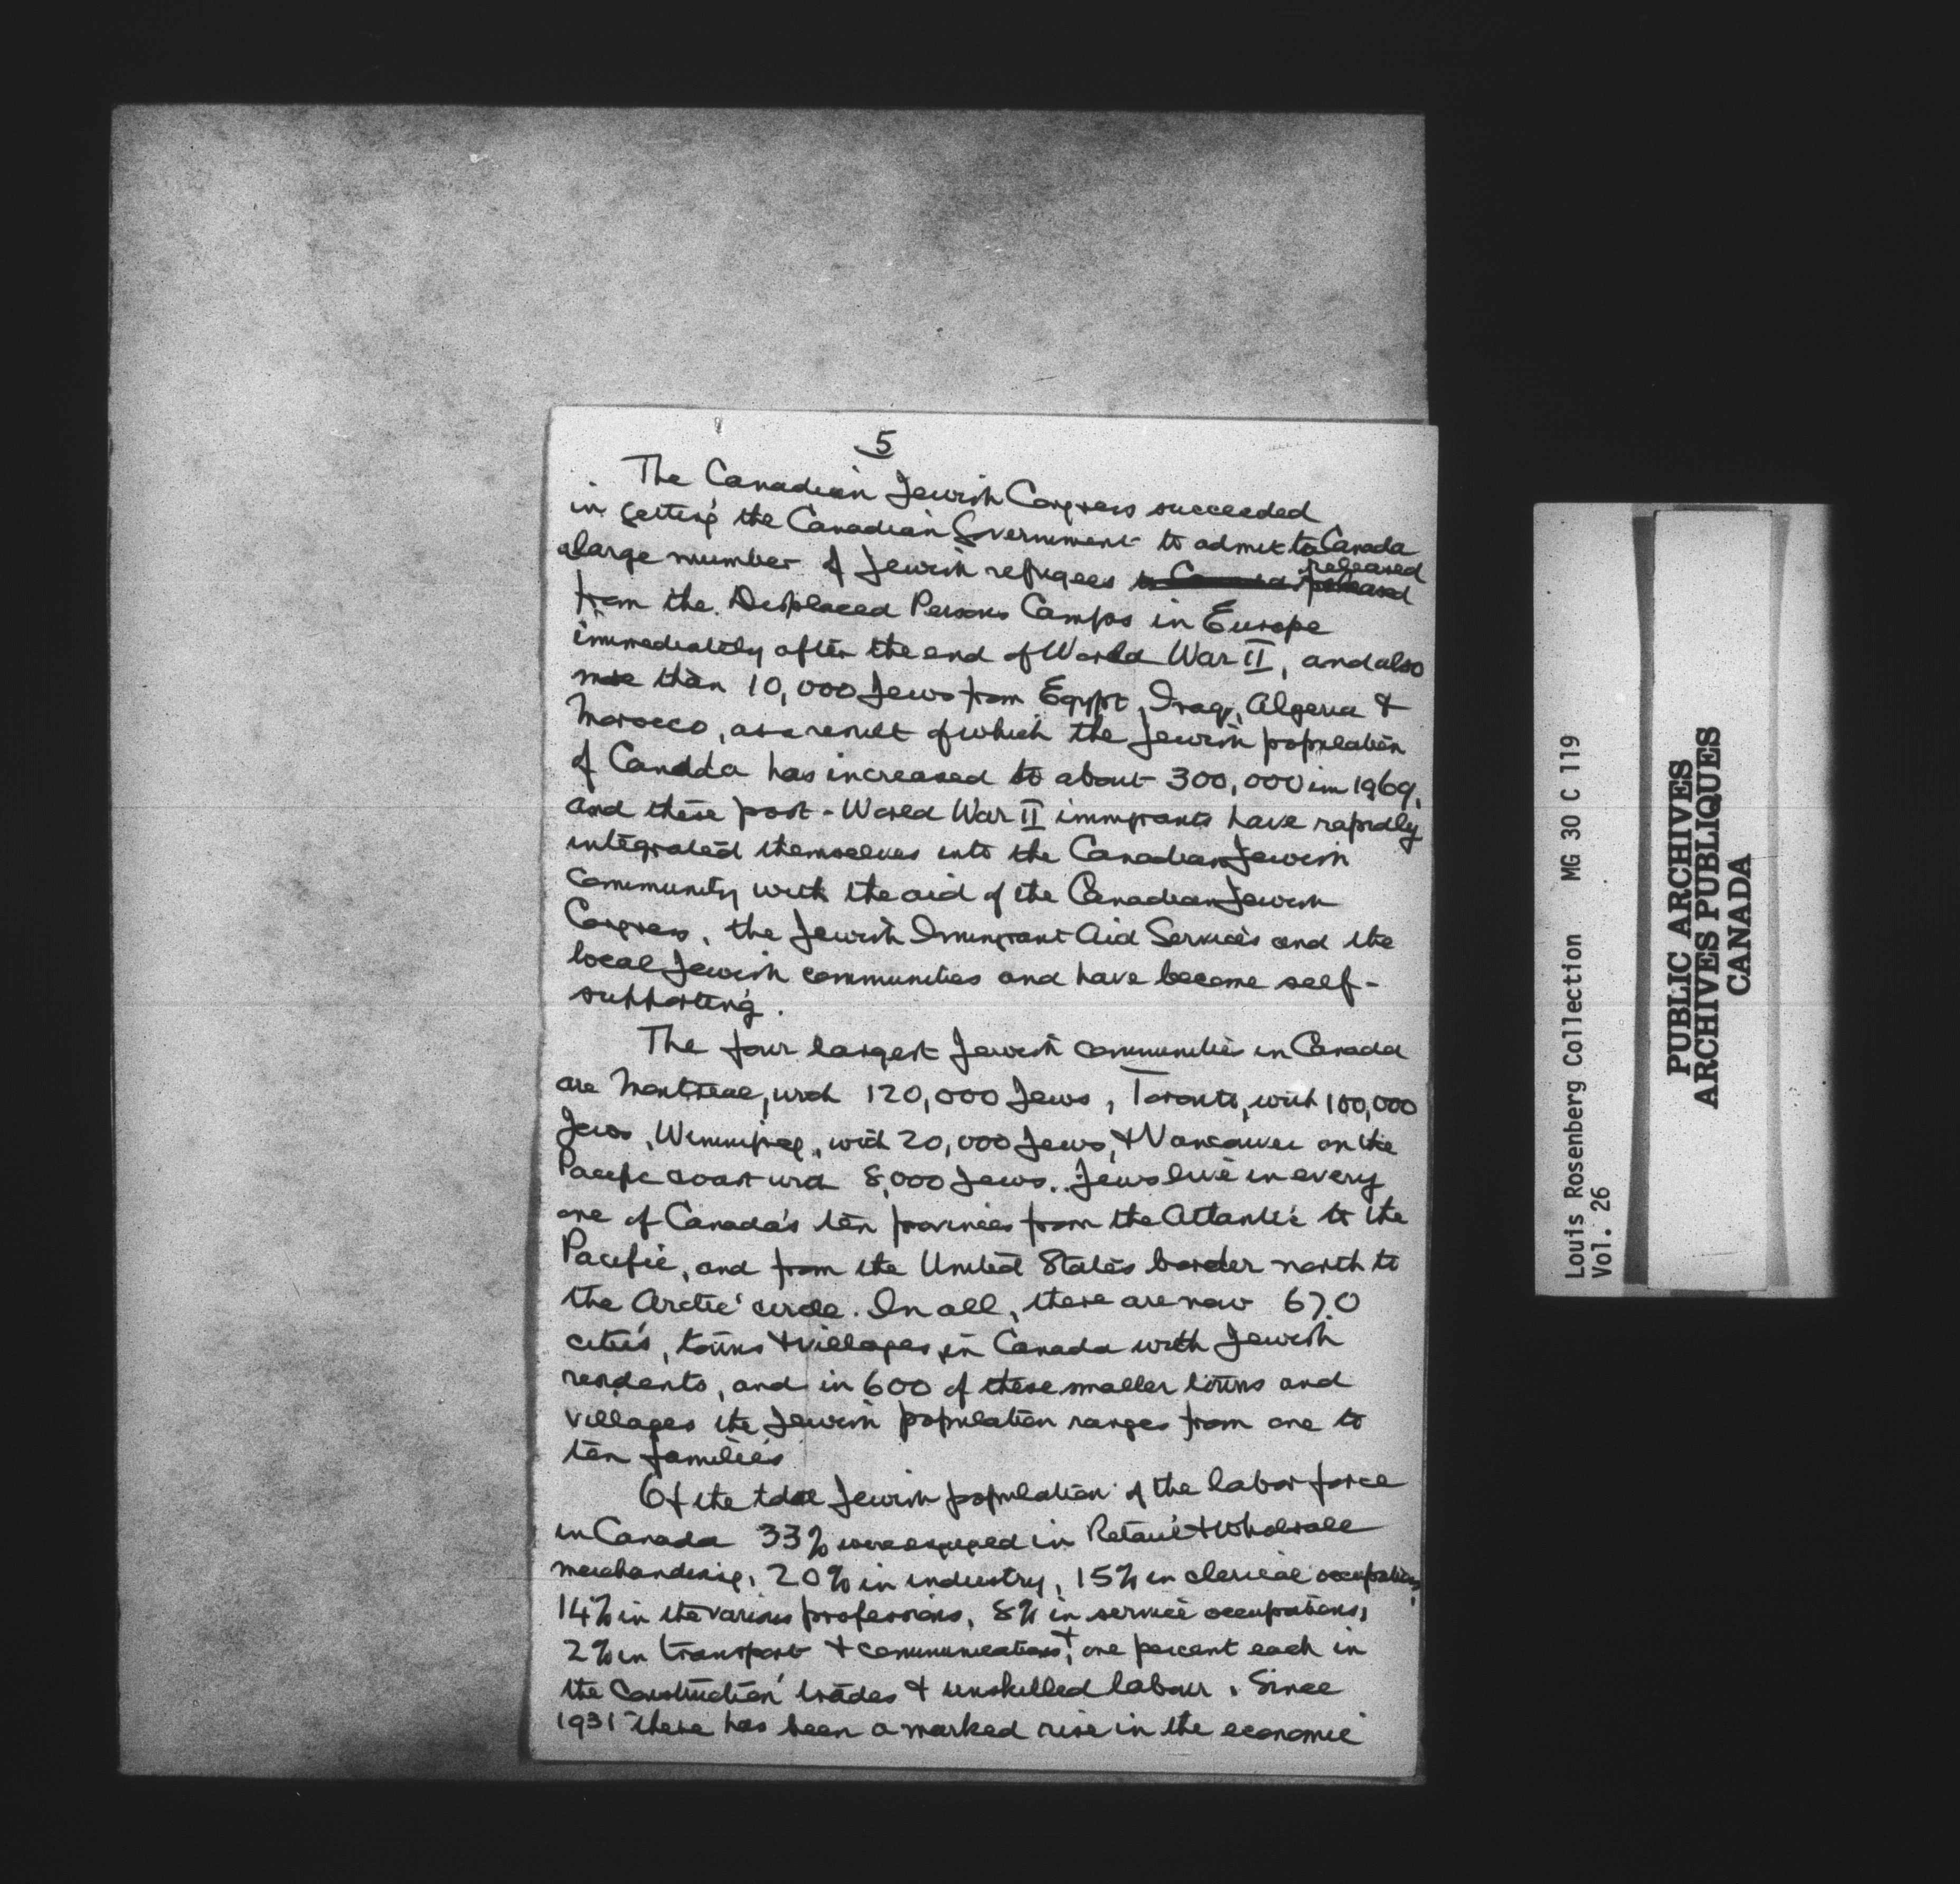 5
The Canadian Jewish Congress succeeded
in getting the Canadian Government to admit to Canada
a large number of Jewish refugees to Canada released released
from the Displaced Persons Camps in Europe
immediately after the end of World War II, and also
more than 10,000 Jews from Egypt, Iraq, Algeria &
Morocco, as a result of which the Jewish population
of Canada has increased to about 300,000 in 1969,
and these post-World War II immigrants have rapidly
integrated themselves into the Canadian Jewish
Community with the aid of the Canadian Jewish
Congress, the Jewish Immigrant Aid Services and the
local Jewish communities and have become self-
supporting.
The four largest Jewish communities in Canada
are Montreal, with 120,000 Jews, Toronto, with 100,000
Jews, Winnipeg, with 20,000 Jews, & Vancouver on the
Pacific coast with 8,000 Jews. Jews live in every
one of Canada's ten provinces from the Atlantic to the
Pacific, and from the United States border north to
the Arctic circle. In all, there are now 670
cities, towns & villages in Canada with Jewish
residents, and in 600 of these smaller towns and
villages the Jewish population ranges from one to
ten families
Of the total Jewish population of the labor force
in Canada 33% were engaged in Retail & Wholesale
merchandising, 20% in industry, 15% in clerical occupations,
14% in the various professions, 8% in service occupations,
2% in transport & communications, & one percent each in
the Construction trades & unskilled labour. Since
1931 there has been a marked rise in the economic
Louis Rosenberg Collection MG 30 C 119
Vol. 26
PUBLIC ARCHIVES
ARCHIVES PUBLIQUES
CANADA